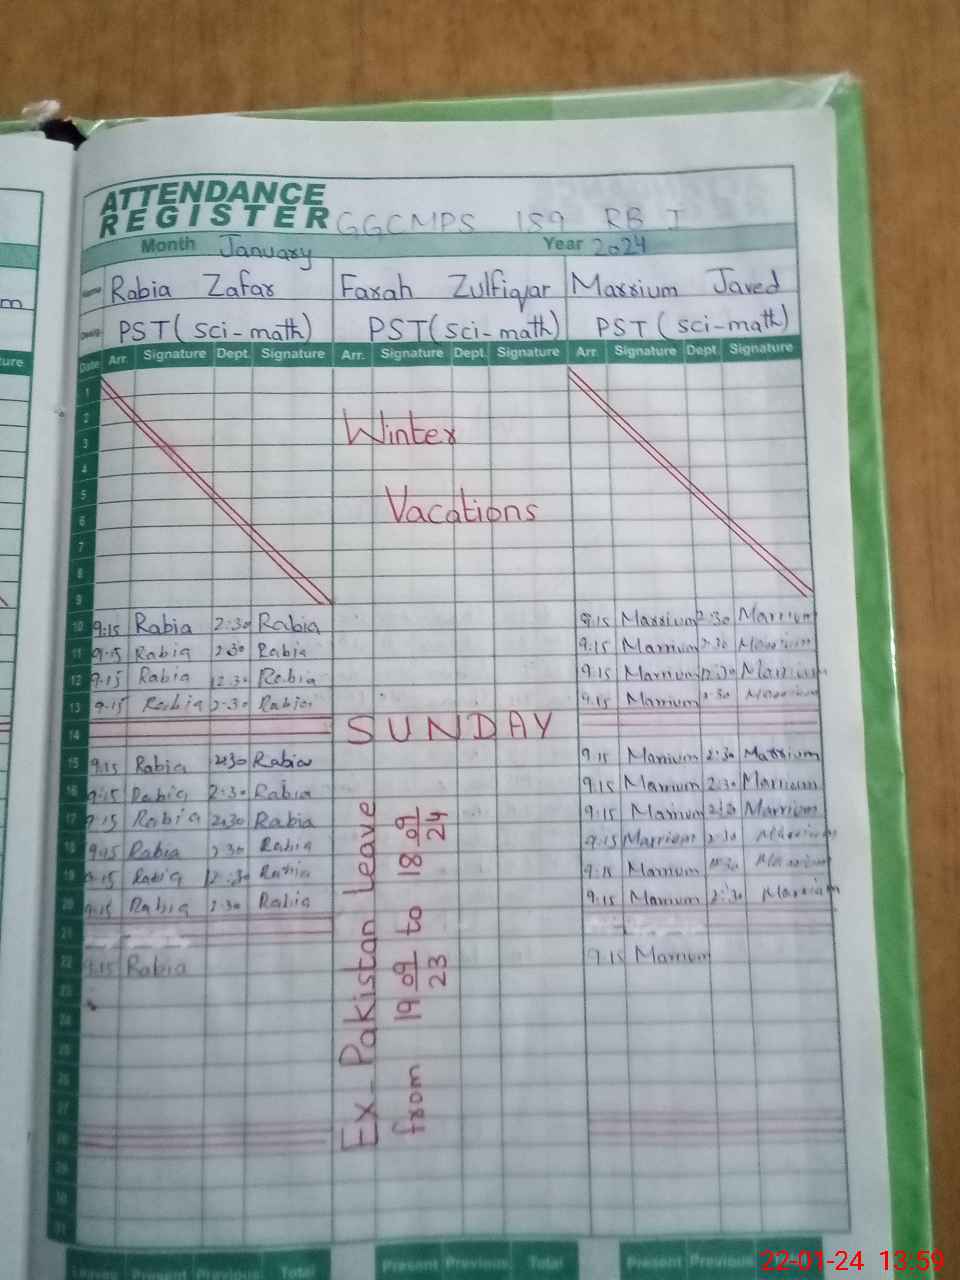 ATTENDANCE
REGISTER GGCMPS 189 RB I
Month January Year 2024
Name Rabia Zafar Farah Zulfiqar Marrium Javed
PST (sci-math) PST (sci-math) PST (sci-math)
Date Arr. Signature Dept. Signature Arr. Signature Dept. Signature Arr. Signature Dept. Signature
1
2
3 Winter
4
5
6 Vacations
7
8
9
10 9:15 Rabia 2:30 Rabia 9:15 Marrium 2:30 Marrium
11 9:15 Rabia 2:30 Rabia 9:15 Marrium 2:30 Marrium
12 9:15 Rabia 2:30 Rabia 9:15 Marrium 2:30 Marrium
13 9:15 Rabia 2:30 Rabia 9:15 Marrium 2:30 Marrium
14 SUNDAY
15 9:15 Rabia 2:30 Rabia 9:15 Marrium 2:30 Marrium
16 9:15 Rabia 2:30 Rabia 9:15 Marrium 2:30 Marrium
17 9:15 Rabia 2:30 Rabia 9:15 Marrium 2:30 Marrium
18 9:15 Rabia 2:30 Rabia 9:15 Marrium 2:30 Marrium
19 9:15 Rabia 2:30 Rabia 9:15 Marrium 2:30 Marrium
20 9:15 Rabia 2:30 Rabia 9:15 Marrium 2:30 Marrium
21
22 9:15 Rabia 9:15 Marrium
23
24
25
26
27
28
29
30
31
Ex-Pakistan Leave
from 19 09/23 to 18 09/24
Total Present Previous Total Present Previous
22-01-24 13:59